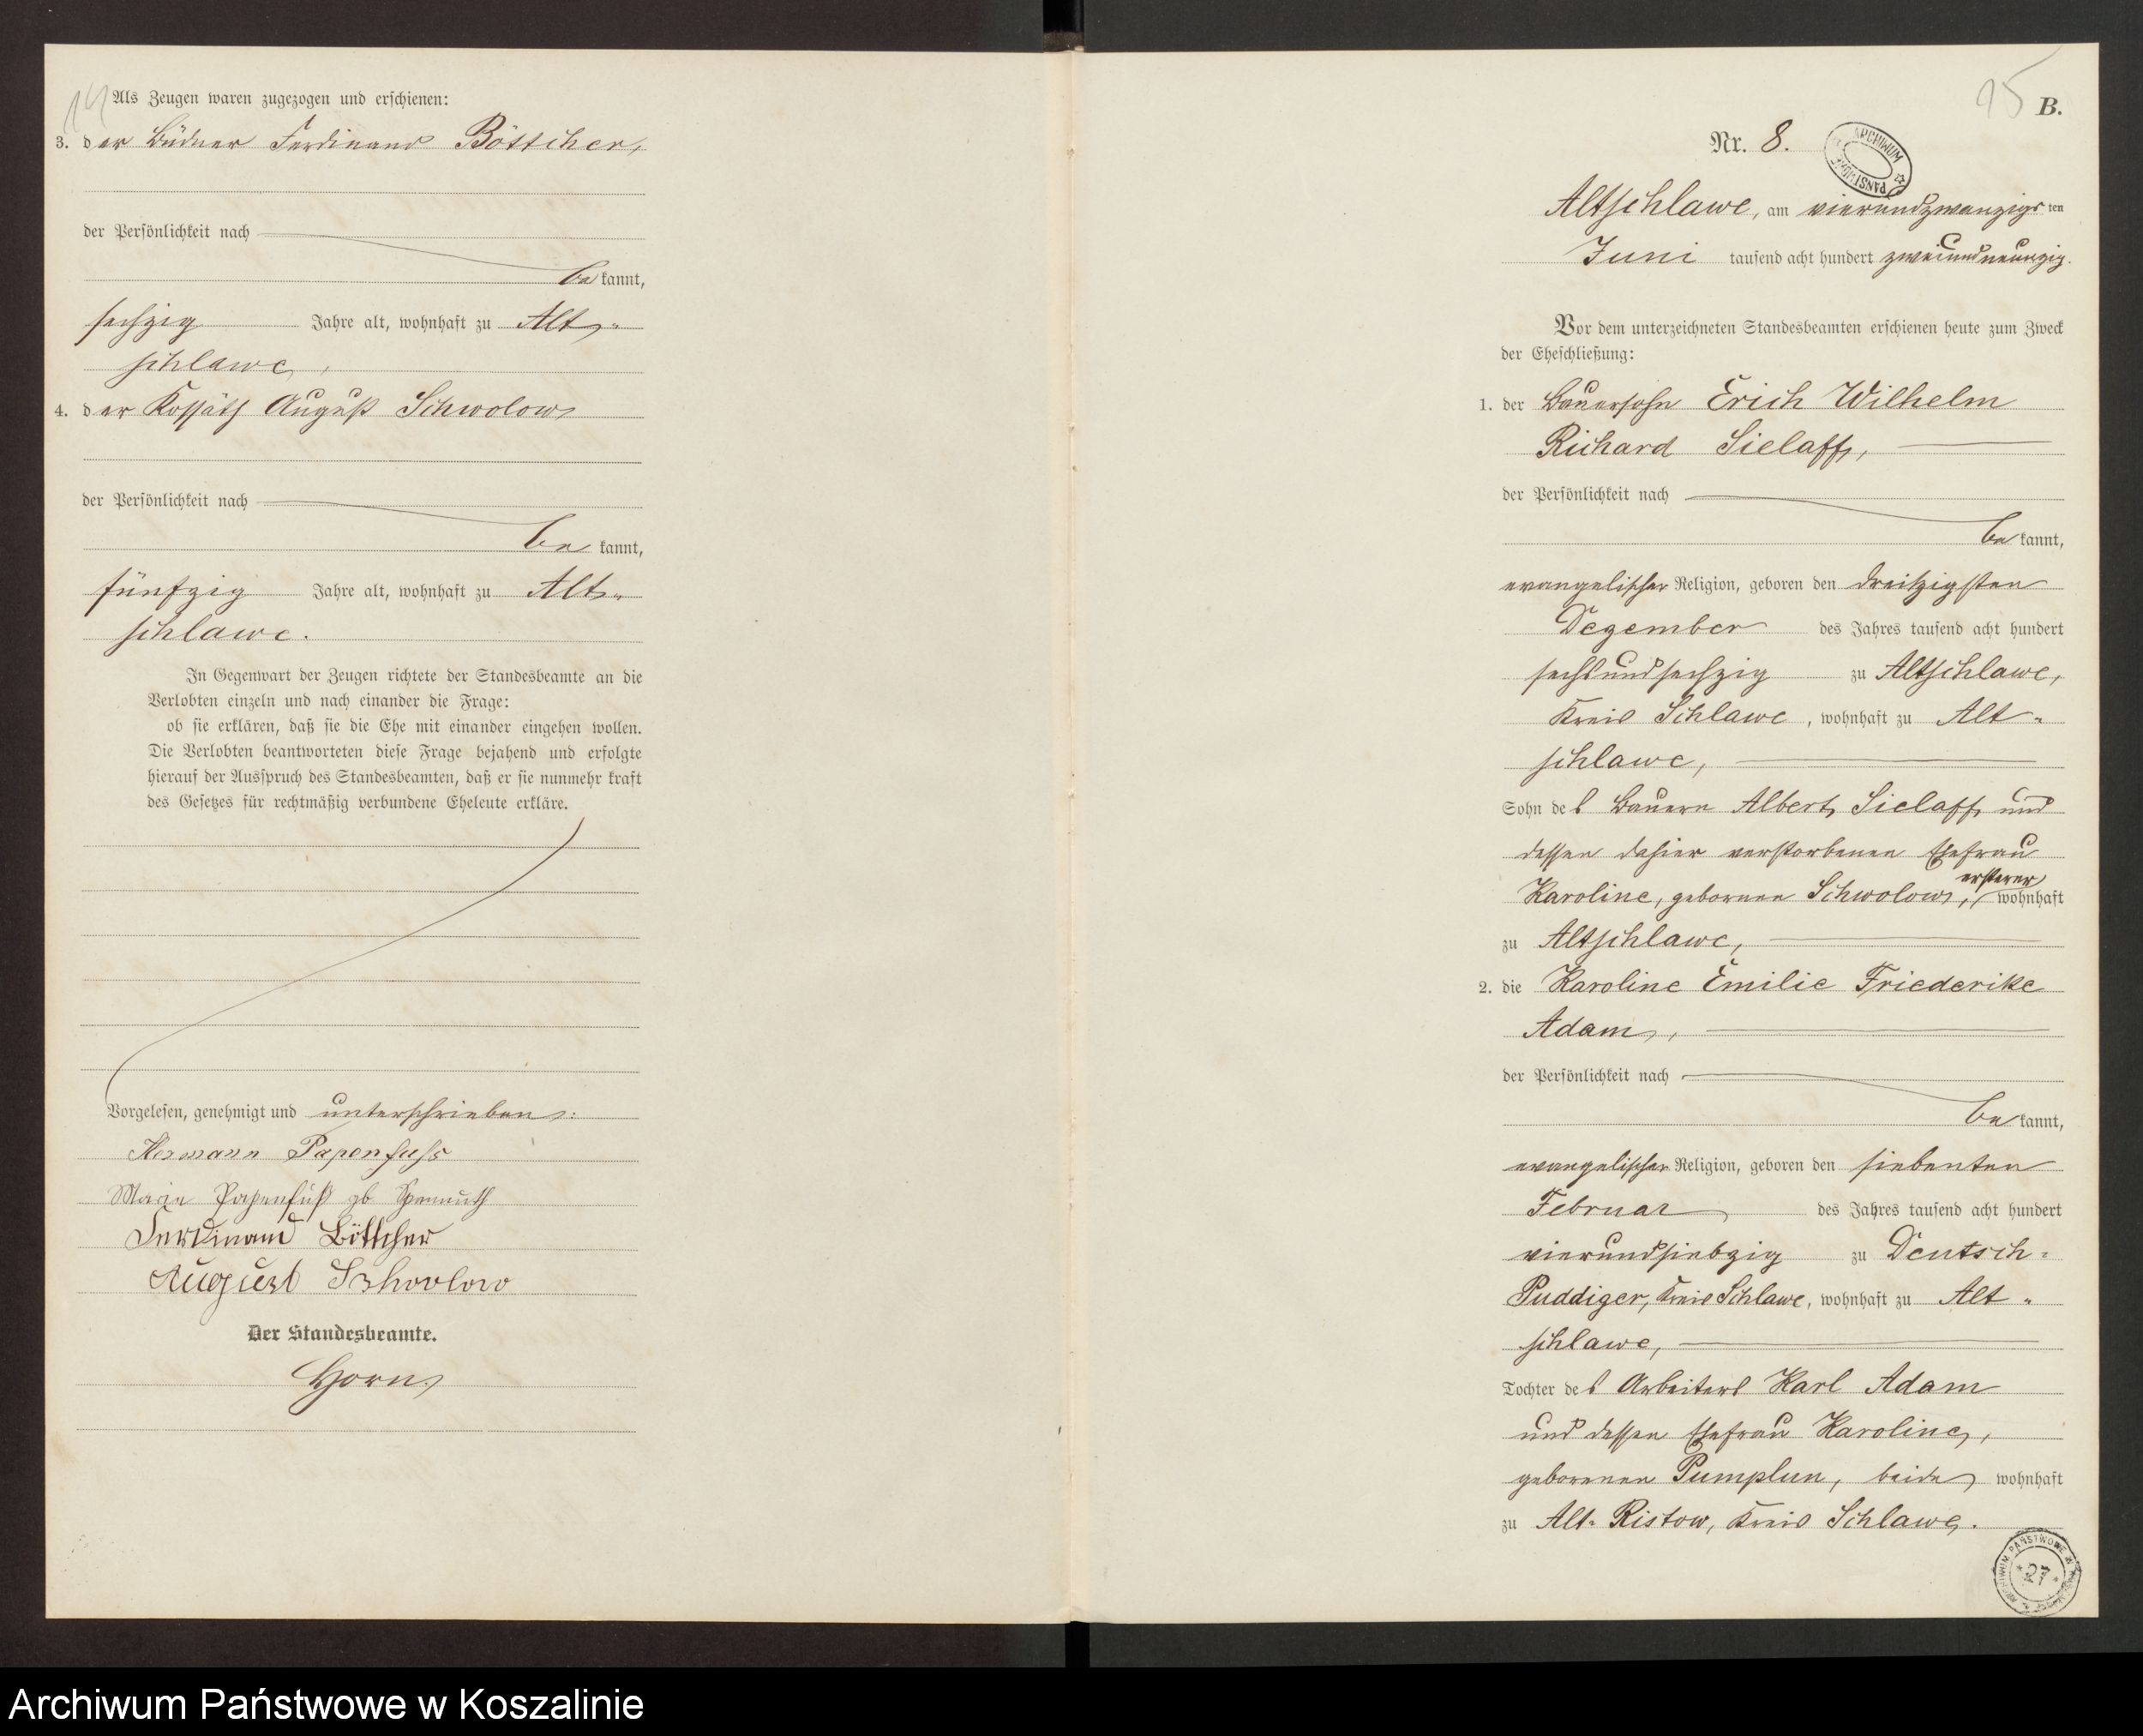 14
Als Zeugen waren zugezogen und erschienen:
3. der Büdner Ferdinand Böttcher,
der Persönlichkeit nach
bekannt,
sechzig Jahre alt, wohnhaft zu Alt-
schlawe,
4. der Kossäth August Schwolow
der Persönlichkeit nach
bekannt,
fünfzig Jahre alt, wohnhaft zu Alt-
schlawe.
In Gegenwart der Zeugen richtete der Standesbeamte an die
Verlobten einzeln und nach einander die Frage:
ob sie erklären, daß sie die Ehe mit einander eingehen wollen.
Die Verlobten beantworteten diese Frage bejahend und erfolgte
hierauf der Ausspruch des Standesbeamten, daß er sie nunmehr kraft
des Gesetzes für rechtmäßig verbundene Eheleute erkläre.
Vorgelesen, genehmigt und unterschrieben:
Hermann Papenfuss
Marie Papenfuß gb
Ferdinand Böttcher
August Schwolow
Der Standesbeamte.
Horn
15
B.
Nr. 8.
ARCHIWUM PAŃSTWOWE
Altschlawe, am vierundzwanzigsten
Juni tausend acht hundert zweiundneunzig.
Vor dem unterzeichneten Standesbeamten erschienen heute zum Zweck
der Eheschließung:
1. der Bauersohn Erich Wilhelm
Richard Sielaff,
der Persönlichkeit nach
bekannt,
evangelischer Religion, geboren den dreißigsten
Dezember des Jahres tausend acht hundert
sechsundsechzig zu Altschlawe,
Kreis Schlawe, wohnhaft zu Alt-
schlawe,
Sohn des Bauern Albert Sielaff und
dessen dahier verstorbenen Ehefrau
Karoline, geborenen Schwolow, ersterer wohnhaft
zu Altschlawe,
2. die Karoline Emilie Friederike
Adam,
der Persönlichkeit nach
bekannt,
evangelischer Religion, geboren den siebenten
Februar des Jahres tausend acht hundert
vierundsiebzig zu Deutsch-
Puddiger, Kreis Schlawe, wohnhaft zu Alt-
schlawe,
Tochter des Arbeiters Karl Adam
und dessen Ehefrau Karoline,
geborenen Pumplun, beide wohnhaft
zu Alt-Ristow, Kreis Schlawe.
ARCHIWUM PAŃSTWOWE W
27
Archiwum Państwowe w Koszalinie